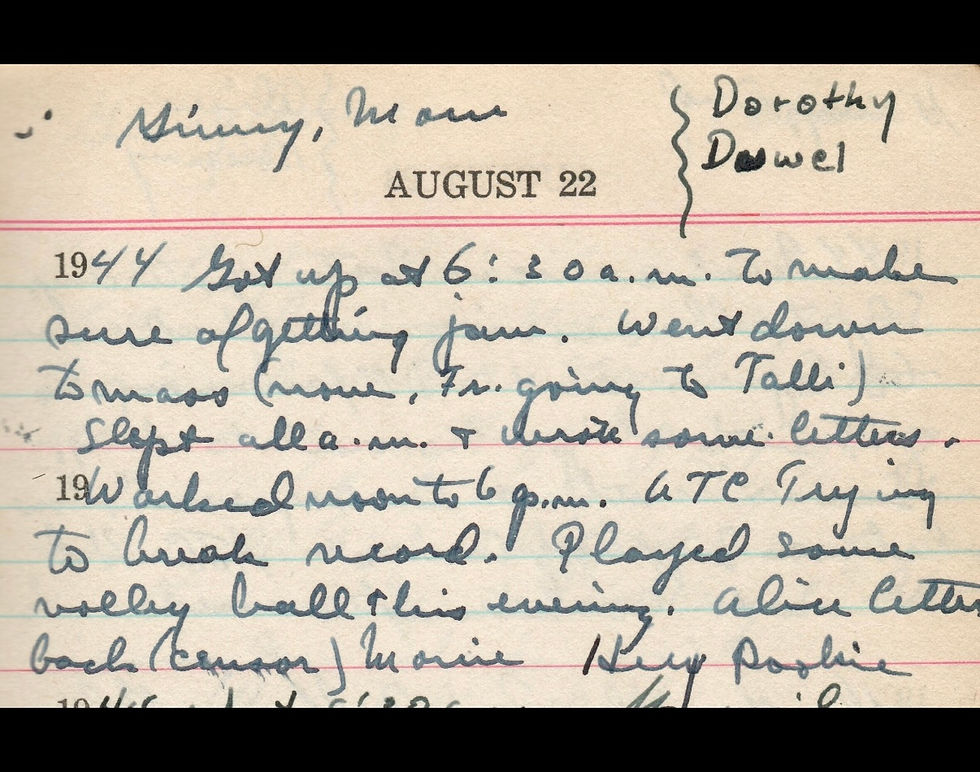 Ginny, Mom
Dorothy
Dowel
AUGUST 22
1944 Got up at 6:30 a.m. To make
sure of getting jam. Went down
to mass (none, Fr. going to Talli)
Slept all a.m. + wrote some letters.
19Worked noon to 6 p.m. ATC Trying
to break record. Played some
volley ball this evening. Alice letter
back (censor) Movie Hey Pookie